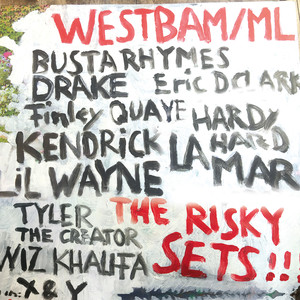 WESTBAM/ML
BUSTA RHYMES
DRAKE Eric D CLARK
Finley QUAYE HARD/
KENDRICK HARD
LAMAR
LIL WAYNE
TYLER THE RISKY
THE CREATOR SETS!!!
WIZ KHALIFA
X & Y